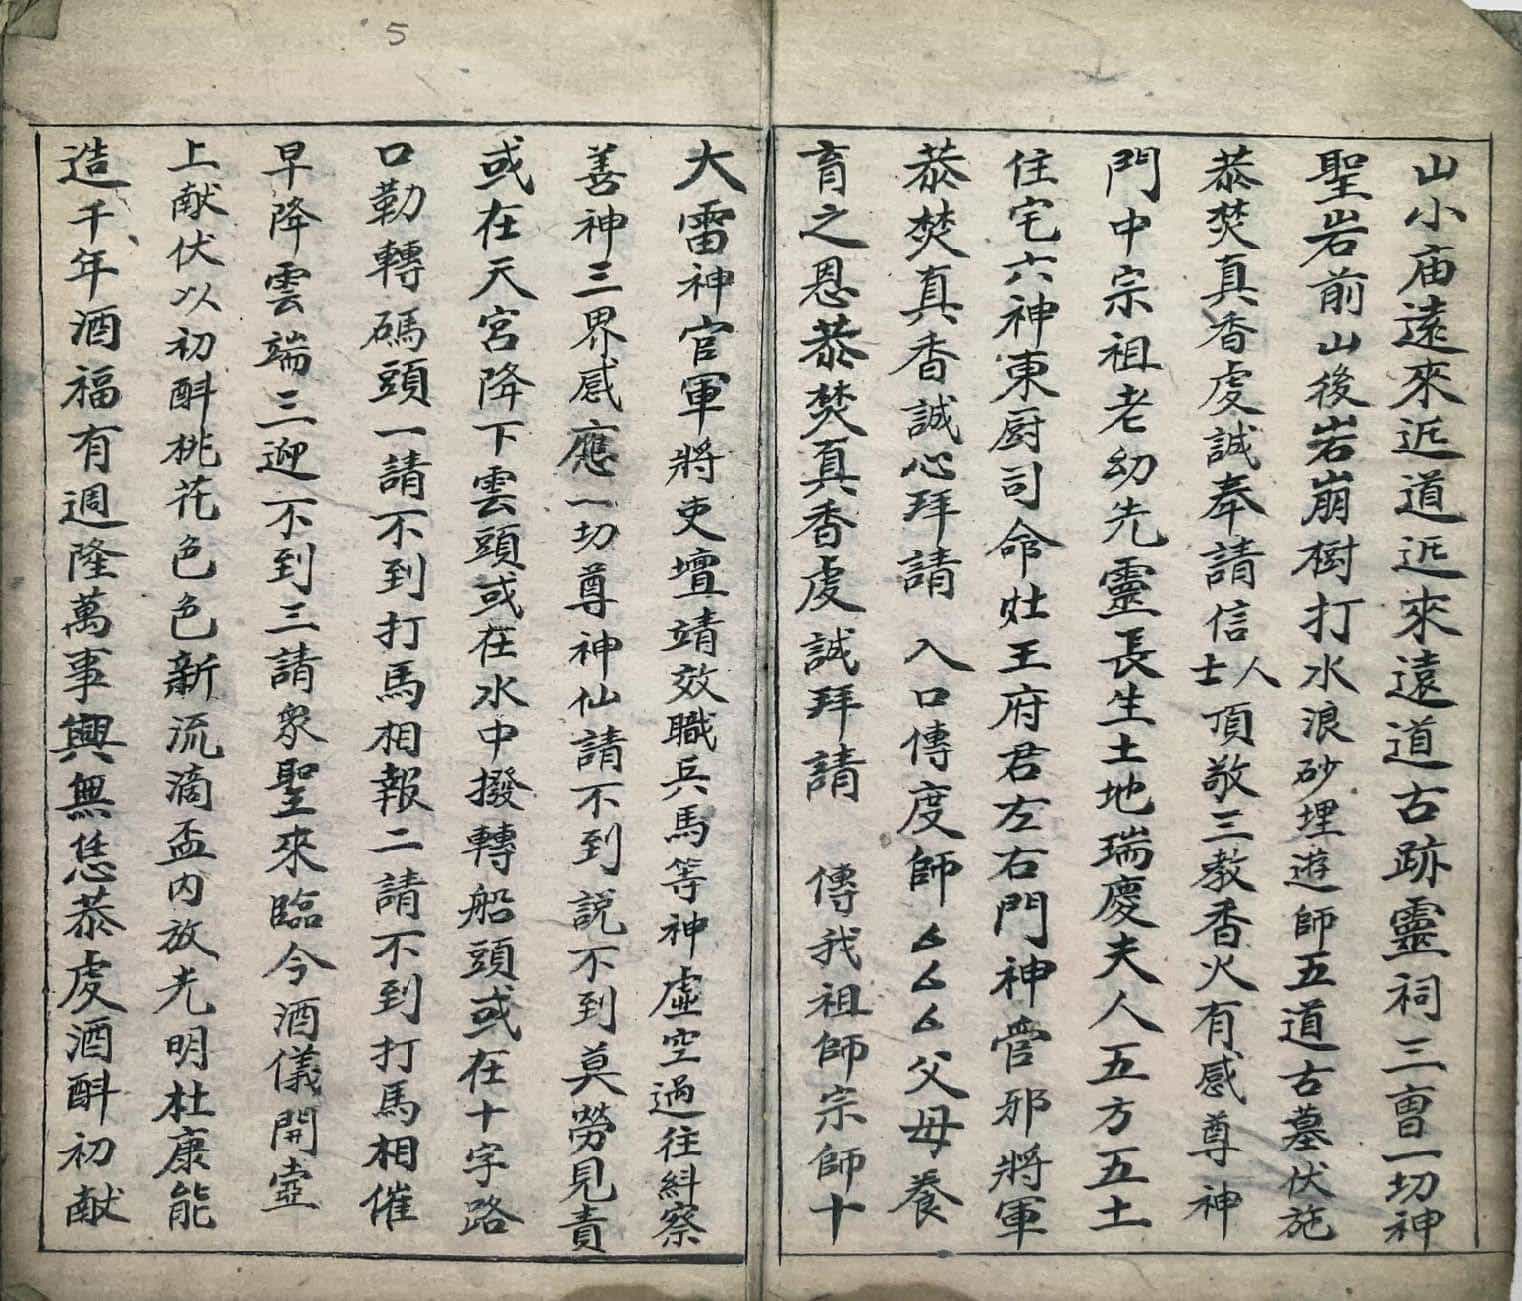 5
山小庙遠來近道近來遠道古跡靈祠三曺一切神
聖岩前山後岩崩樹打水浪砂埋遊師五道古墓伏施
恭焚真香虔誠奉請信士人頂敬三教香火有感尊神
門中宗祖老幼先靈長生土地瑞慶夫人五方五土
住宅六神東厨司命灶王府君左右門神管邪將軍
恭焚真香誠心拜請 入口傳度師厶厶厶父母養
育之恩恭焚真香虔誠拜請 傳我祖師宗師十
大雷神官軍將吏壇靖效職兵馬等神虛空過往糾察
善神三界感應一切尊神仙請不到説不到莫勞見責
或在天宮降下雲頭或在水中撥轉船頭或在十字路
口勒轉碼頭一請不到打馬相報二請不到打馬相催
早降雲端三迎不到三請衆聖來臨今酒儀開壺
上献伏以初酙桃花色色新流滴盃内放光明杜康能
造千年酒福有週隆萬事興無恁恭虔酒酙初献